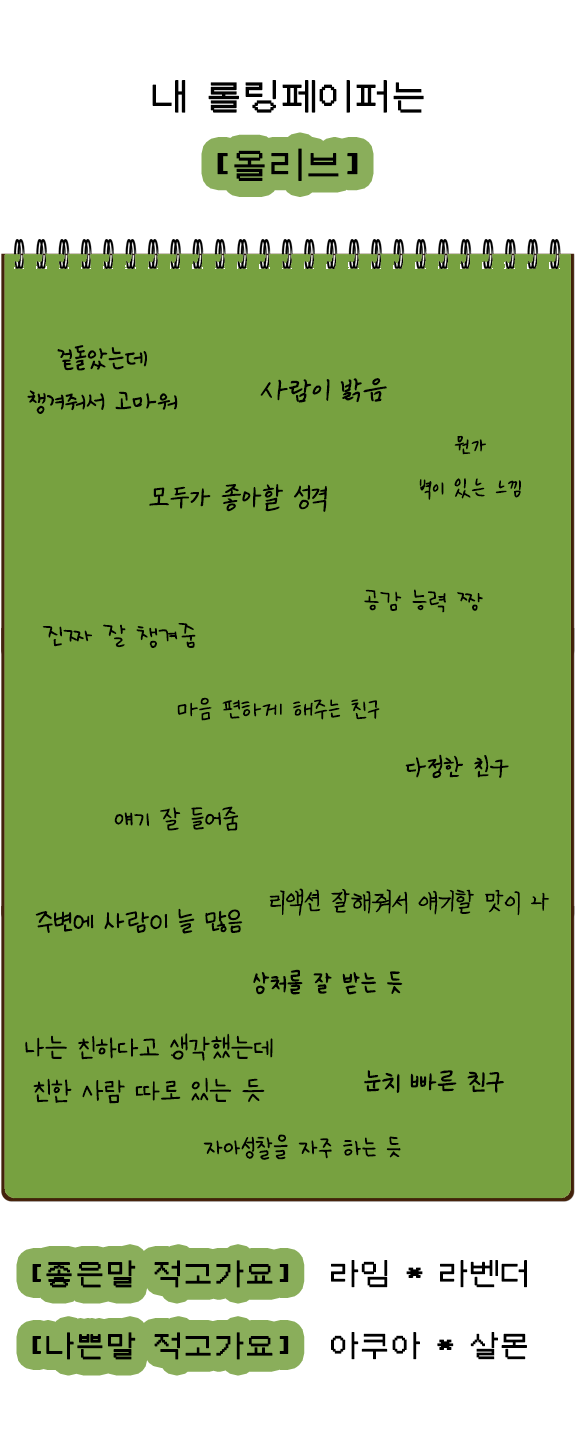 내 롤링페이퍼는
[올리브]
겉돌았는데
챙겨줘서 고마워
사람이 밝음
뭔가
벽이 있는 느낌
모두가 좋아할 성격
공감 능력 짱
진짜 잘 챙겨줌
마음 편하게 해주는 친구
다정한 친구
얘기 잘 들어줌
리액션 잘해줘서 얘기할 맛이 나
주변에 사람이 늘 많음
상처를 잘 받는 듯
나는 친하다고 생각했는데
친한 사람 따로 있는 듯
눈치 빠른 친구
자아성찰을 자주 하는 듯
[좋은말 적고가요] 라임 * 라벤더
[나쁜말 적고가요] 아쿠아 * 살몬